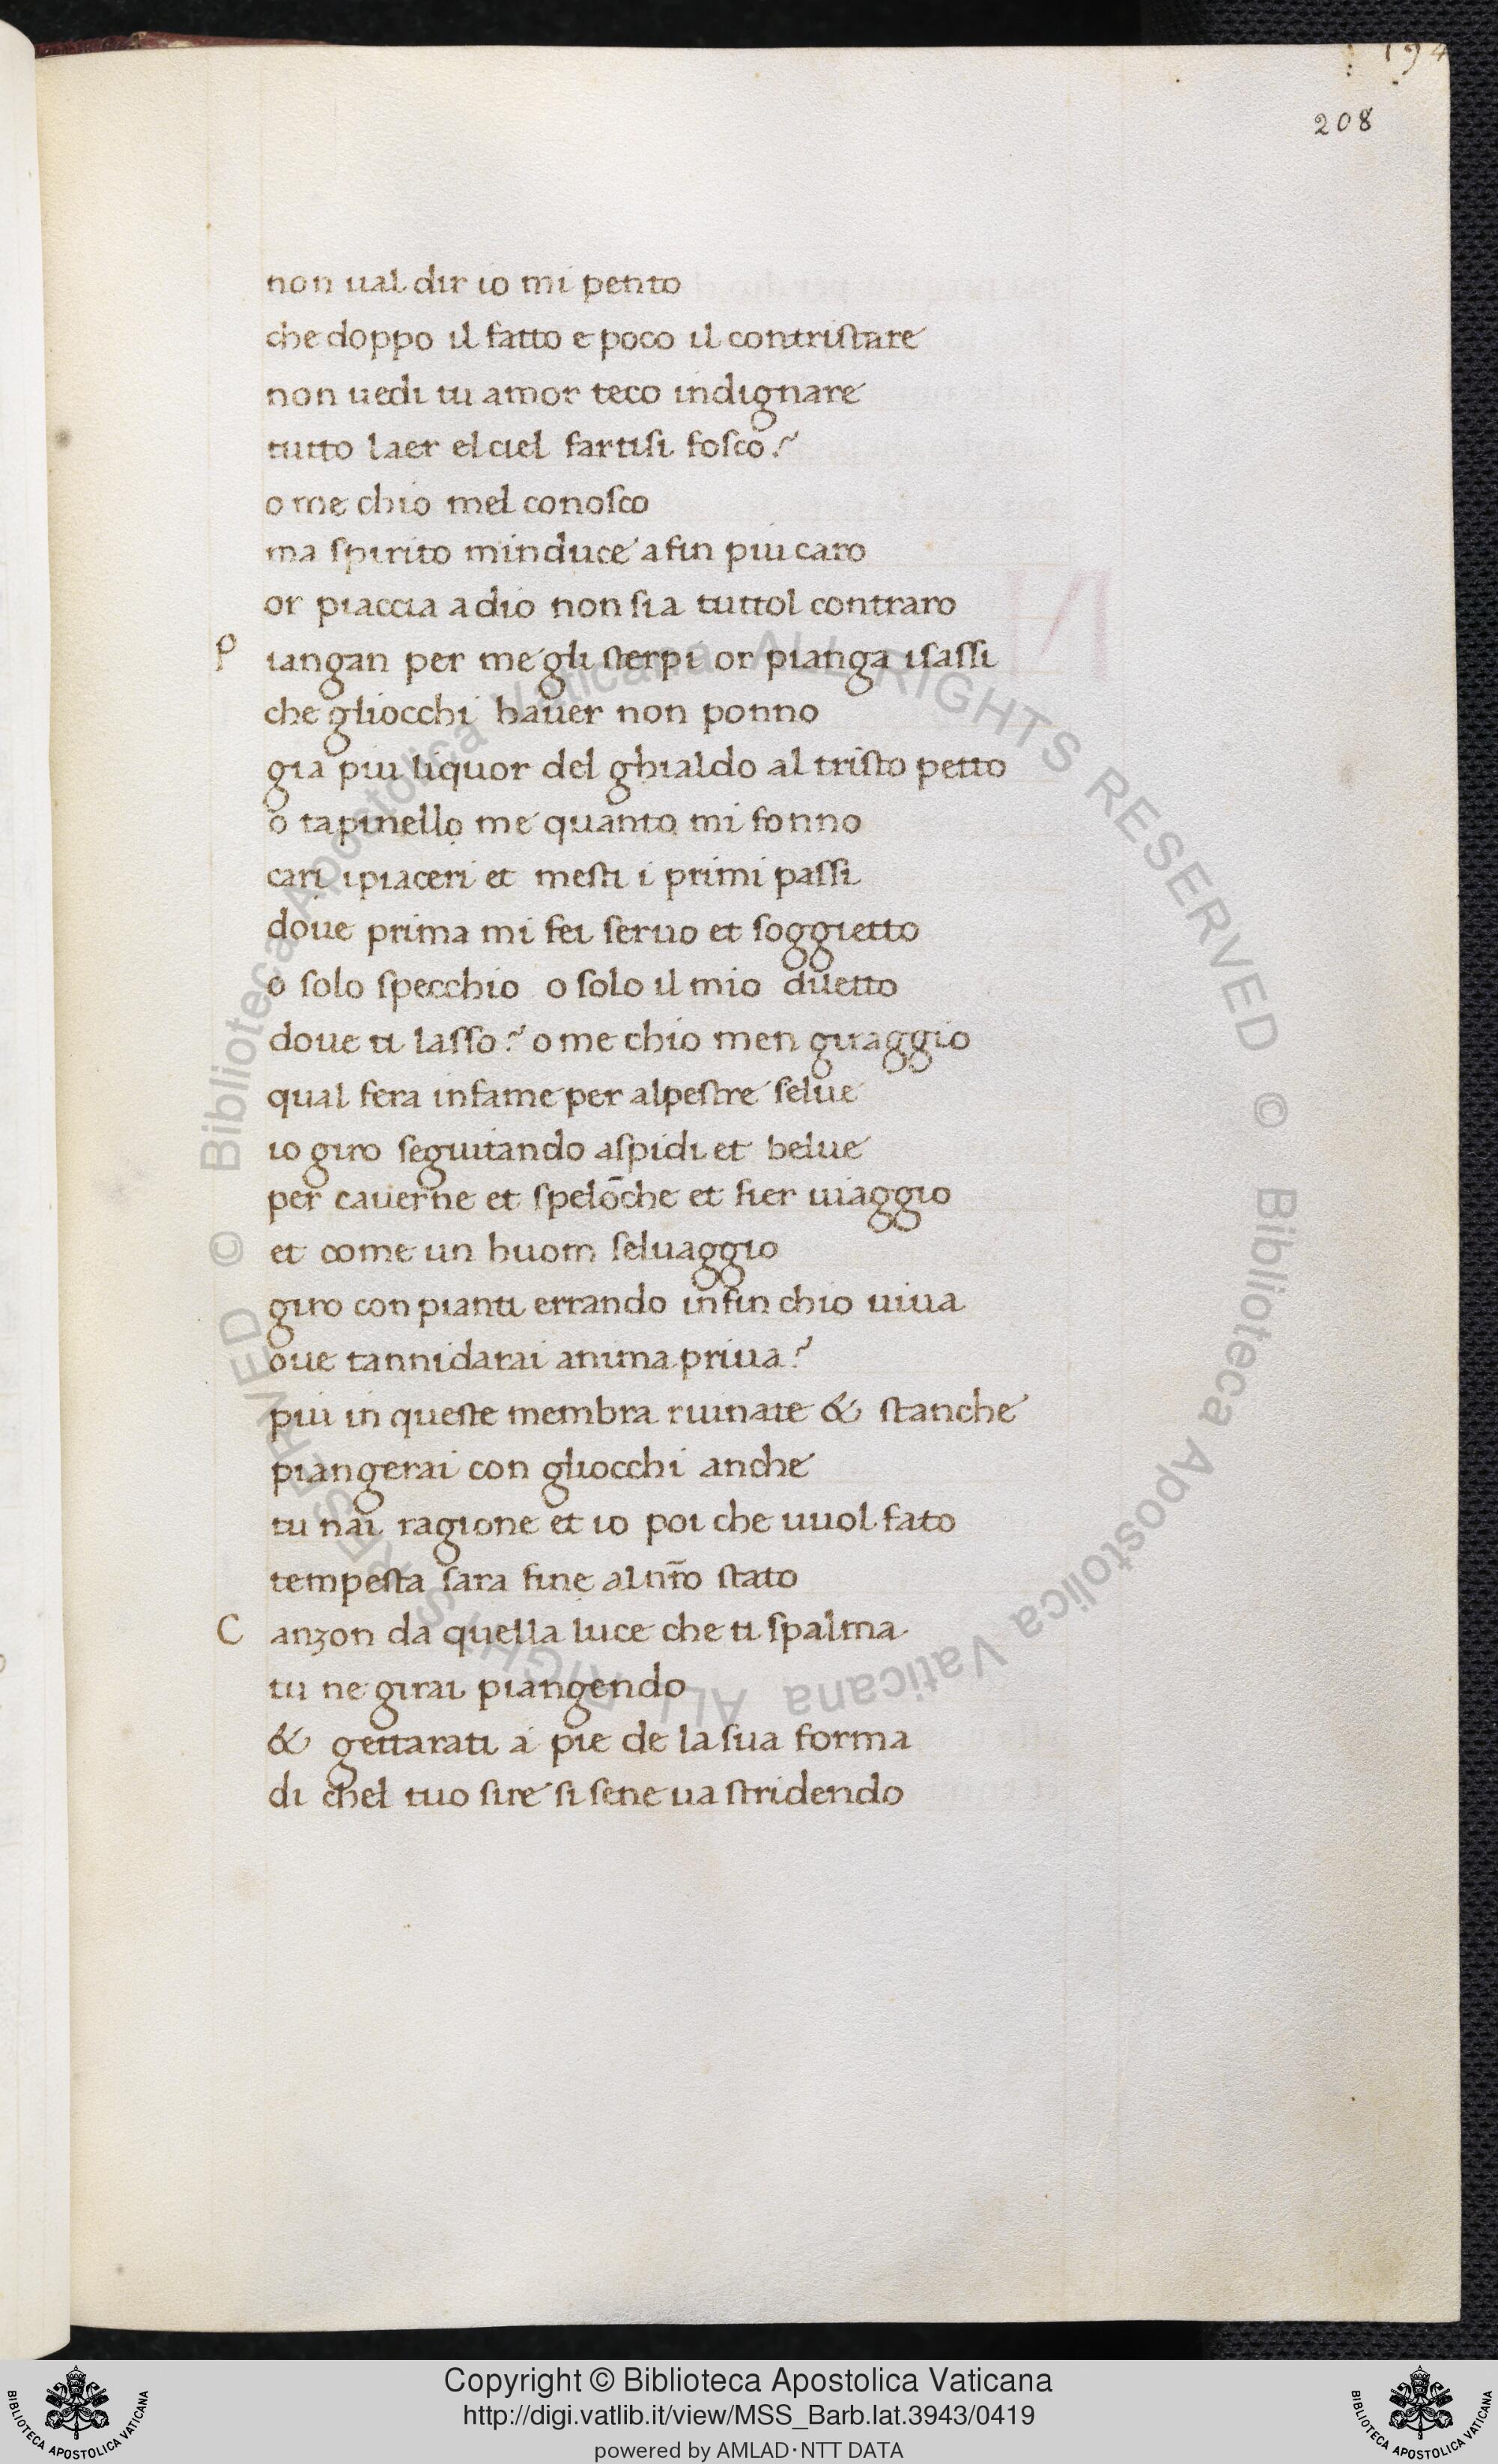 194
208
non ual dir io mi pento
che doppo il fatto e poco il contristare
non uedi tu amor teco indignare
tutto laer el ciel fartisi fosco?
o me chio mel conosco
ma spirito minduce a fin piu caro
or piaccia a dio non sia tuttol contraro
P iangan per me gli sterpi or pianga i sassi
che gliocchi hauer non ponno
gia piu liquor del ghialdo al tristo petto
o tapinello me quanto mi fonno
cari i piaceri et mesti i primi passi
doue prima mi fei seruo et soggietto
o solo specchio o solo il mio diletto
doue ti lasso? o me chio men giraggio
qual fera infame per alpestre selue
io giro seguitando aspidi et belue
per cauerne et spelõche et fier uiaggio
et come un huom seluaggio
giro con pianti errando infin chio uiua
oue tannidarai anima priua?
piu in queste membra ruinate & stanche
piangerai con gliocchi anche
tu nai ragione et io poi che uuol fato
tempesta sara fine al nr̃o stato
C anzon da quella luce che ti spalma
tu ne girai piangendo
& gettarati a pie de la sua forma
di chel tuo sire si sene ua stridendo
Biblioteca Apostolica Vaticana ALL RIGHTS RESERVED ©
Biblioteca Apostolica Vaticana ALL RIGHTS RESERVED ©
Copyright © Biblioteca Apostolica Vaticana
http://digi.vatlib.it/view/MSS_Barb.lat.3943/0419
powered by AMLAD·NTT DATA
BIBLIOTECA APOSTOLICA VATICANA
BIBLIOTECA APOSTOLICA VATICANA